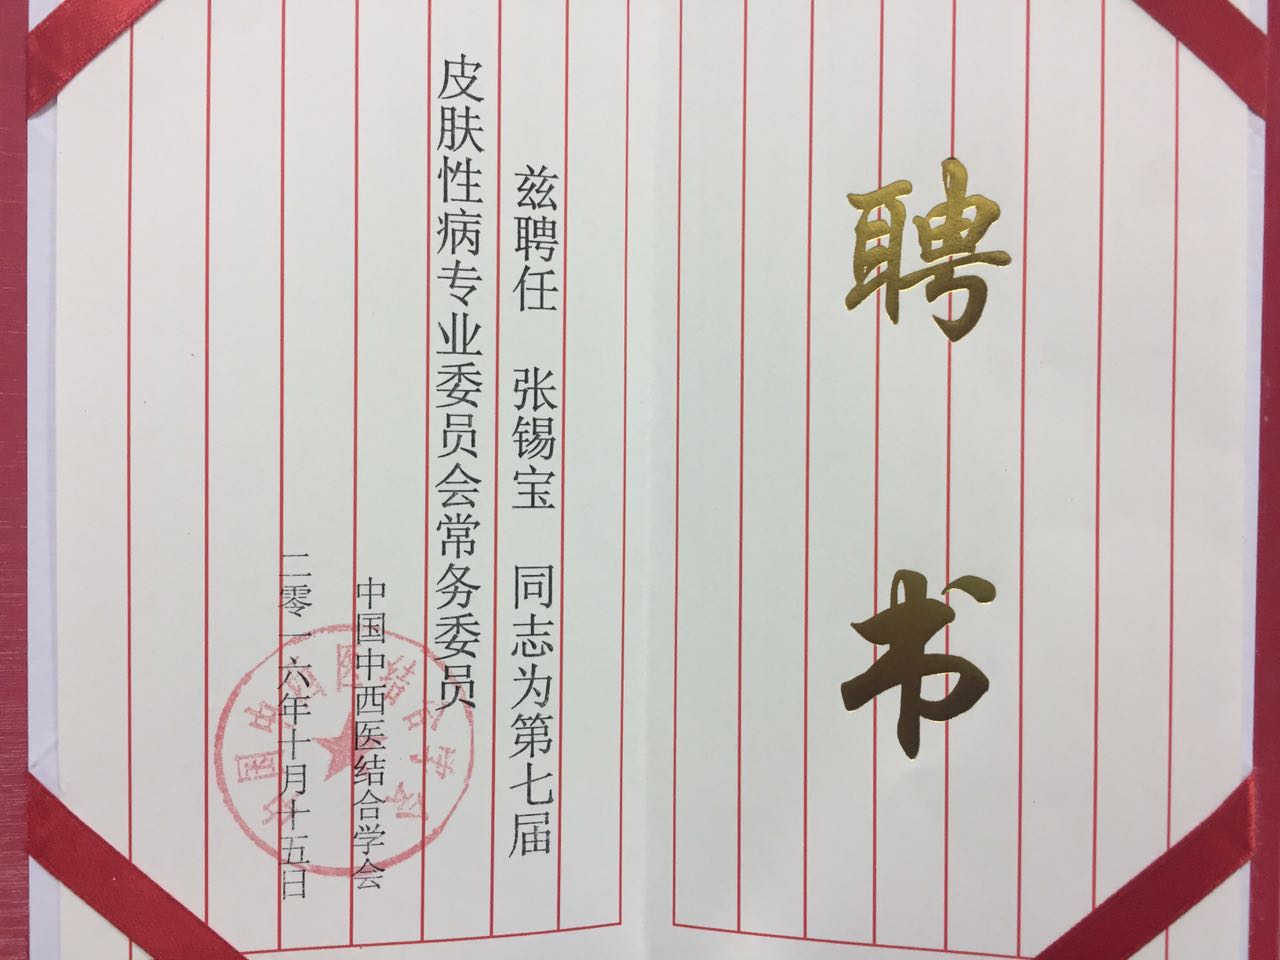 聘书
兹聘任 张锡宝 同志为第七届
皮肤性病专业委员会常务委员
中国中西医结合学会
二零一六年十月十五日
中国中西医结合学会